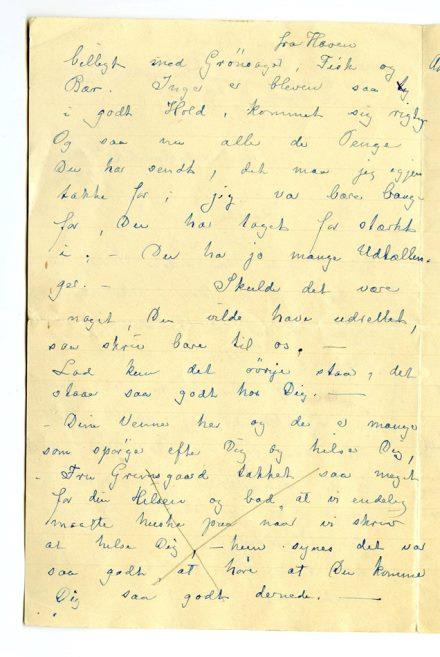 fra Haven
billigt med Grönsager, Fisk og
Bær. Inger er bleven saa
i godt Hold, kommet sig rigtig
Og saa nu alle de Penge
Du har sendt, det maa jeg igjen
takke for; jeg var bare bange
for, Du har taget for stærkt
i. - Du har jo mange Udtællin-
ger. - Skulde det være
noget, Du vilde have udrettet,
saa skriv bare til os, -
Lad kun det övrije staa, det
staar saa godt hos Dig. -
- Dine Venner her og de er mange
som spörge efter Dig og helse Dig,
- Fru Grimsgaard takket saa meget
for din Hilsen og bad, at vi endelig
maatte huske paa naar vi skrev
at helse Dig, - hun synes det var
saa godt, at höre at Du kommer
Dig saa godt dernede. -